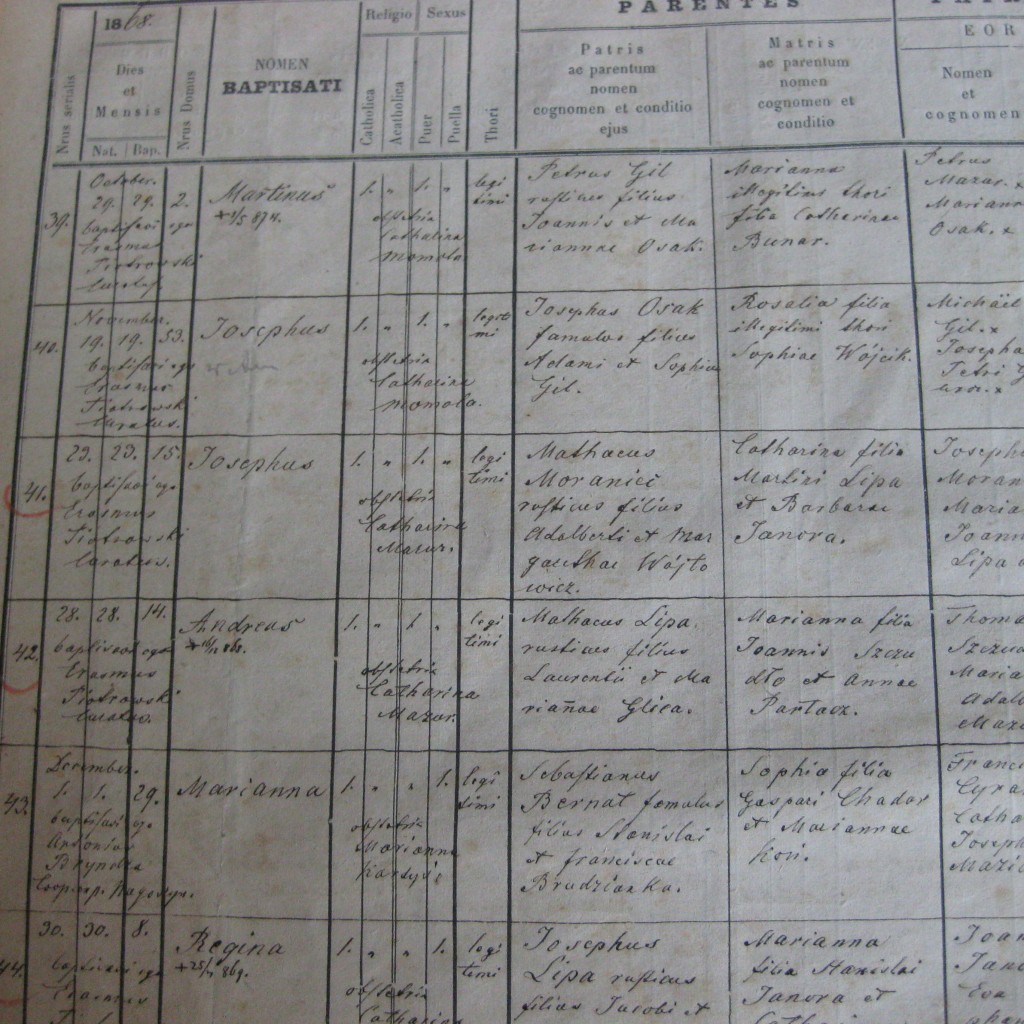 1868.
Religio
Sexus
PARENTES
Nrus serialis
Dies
et
Mensis
Nat.
Bap.
Nrus Domus
NOMEN
BAPTISATI
Catholica
Acatholica
Puer
Puella
Thori
Patris
ac parentum
nomen
cognomen et conditio
ejus
Matris
ac parentum
nomen
cognomen et
conditio
EOR
Nomen
et
cognomen
39.
October.
29. 29. 2.
baptisavi ego
Erasmus
Piotrowski
Martinus
1. „ 1. „
obstetrix
Catharina
Momola
legi
timi
Petrus Gil
rusticus filius
Joannis et Ma
riannae Osak.
Marianna
illegitimi thori
filia Catharinae
Bunar.
Petrus
Mazur. x
Mariann
Osak. x
40.
November.
19. 19. 53.
baptisavi ego
Erasmus
Piotrowski
Curatus.
Josephus
1. „ 1. „
obstetrix
Catharina
Momola.
legiti
mi
Josephus Osak
famulus filius
Adami et Sophiae
Gil.
Rosalia filia
illegitimi thori
Sophiae Wójcik.
Michaël
Gil. x
Josepha
Petri G
41.
23. 23. 15.
baptisavi ego
Erasmus
Piotrowski
Curatus.
Josephus
1. „ 1. „
obstetrix
Catharina
Mazur.
legi
timi
Mathaeus
Moraniec
rusticus filius
Adalberti et Mar
garethae Wójto
wicz.
Catharina filia
Martini Lipa
et Barbarae
Janora.
Joseph
Moran
Maria
Joann
Lipa
42.
28. 28. 14.
baptisavi ego
Erasmus
Piotrowski
Curatus.
Andreas
1. „ 1. „
obstetrix
Catharina
Mazur.
legi
timi
Mathaeus Lipa.
rusticus filius
Laurentii et Ma
riannae Glica.
Marianna filia
Joannis Szczu
dło et Annae
Partacz.
Thoma
Maria
Adalb
43.
December.
1. 1. 29.
baptisavi ego
Antonius
Bryndza
Marianna
1. „ „ 1.
obstetrix
Marianna
legi
timi
Sebastianus
Bernat famulus
filius Stanislai
et Franciscae
Brudzianka.
Sophia filia
Gaspari Chador
et Mariannae
Koń.
Franci
Cyra
Catha
Joseph
44.
30. 30. 8.
baptisavi ego
Erasmus
Regina
1. „ „ 1.
obstetrix
Catharina
legi
timi
Josephus
Lipa rusticus
filius Jacobi et
Marianna
filia Stanislai
Janora et
Joan
Jano
Eva